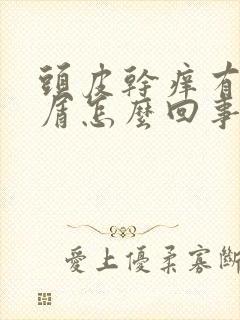 頭皮幹癢有
屑怎麼回事
愛上優柔寡斷